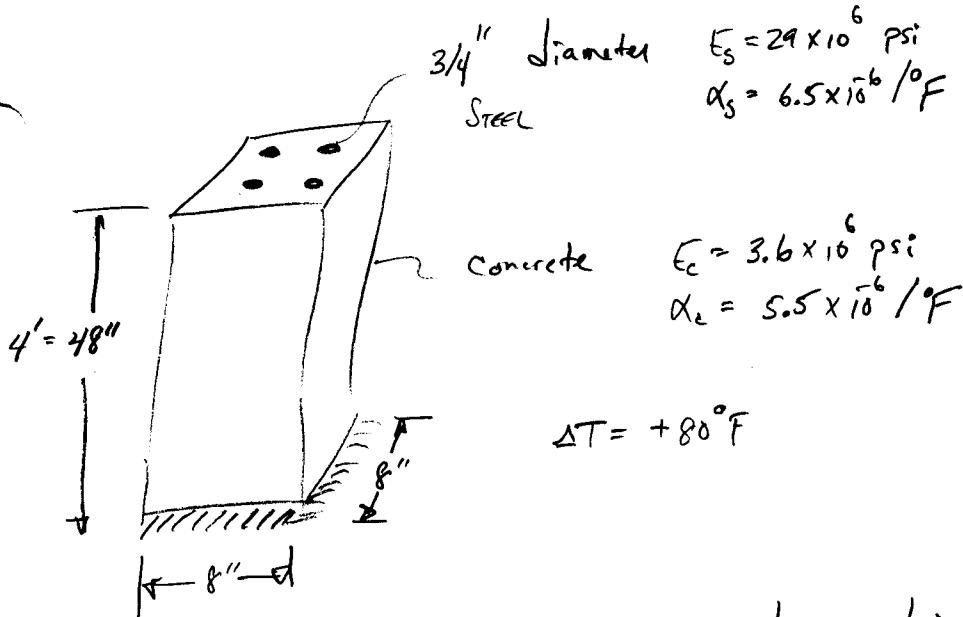 3/4" diameter
STEEL
E_s = 29 x 10^6 psi
α_s = 6.5 x 10^-6 /°F
Concrete
E_c = 3.6 x 10^6 psi
α_c = 5.5 x 10^-6 /°F
4' = 48"
ΔT = +80°F
8"
8"